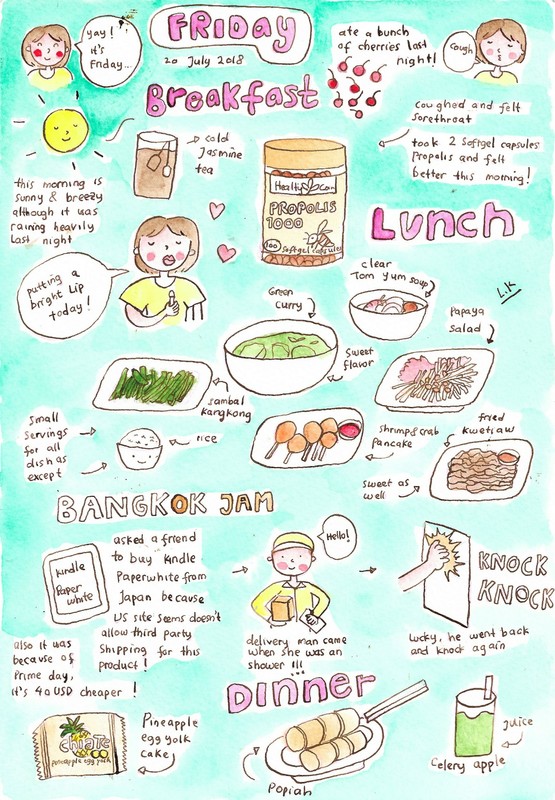 yay!
it's
Friday...
FRIDAY
20 July 2018
ate a bunch
of cherries last
night!
Cough
Breakfast
this morning is
sunny & breezy
although it was
raining heavily
last night
cold
Jasmine
tea
Healthy Care
PROPOLIS
1000
100 Softgel capsules
coughed and felt
sorethroat
took 2 softgel capsules
Propolis and felt
better this morning!
putting a
bright Lip
today!
LUNCH
L.K
clear
Tom yum soup
Green
curry
Papaya
salad
Sweet
flavor
sambal
Kangkong
small
servings
for all
dish as
except
rice
shrimp & crab
Pancake
fried
kwetiaw
Sweet as
well
BANGKOK JAM
kindle
Paper
white
asked a friend
to buy Kindle
Paperwhite from
Japan because
US site seems doesn't
allow third party
Shipping for this
product!
also it was
because of
Prime day,
it's 40 USD cheaper!
Hello!
delivery man came
when she was an
shower !!!
KNOCK
KNOCK
Lucky, he went back
and knock again
DINNER
chiaTe
pineapple egg yolk
Pineapple
egg yolk
cake
Popiah
juice
Celery apple